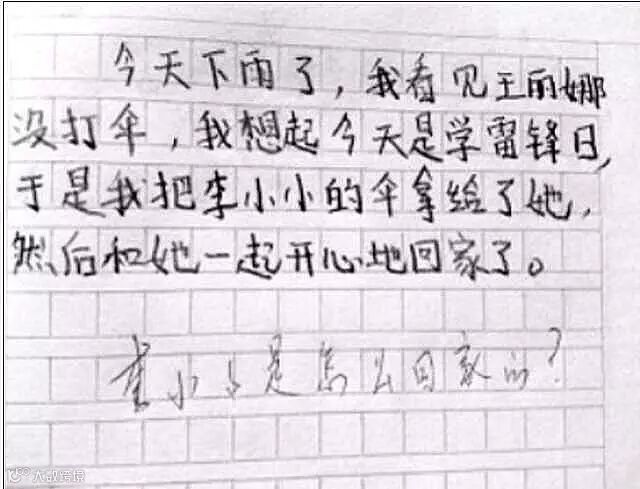 今天下雨了，我看见王丽娜
没打伞，我想起今天是学雷锋日，
于是我把李小小的伞拿给了她，
然后和她一起开心地回家了。
李小小是怎么回家的？
大数跨境